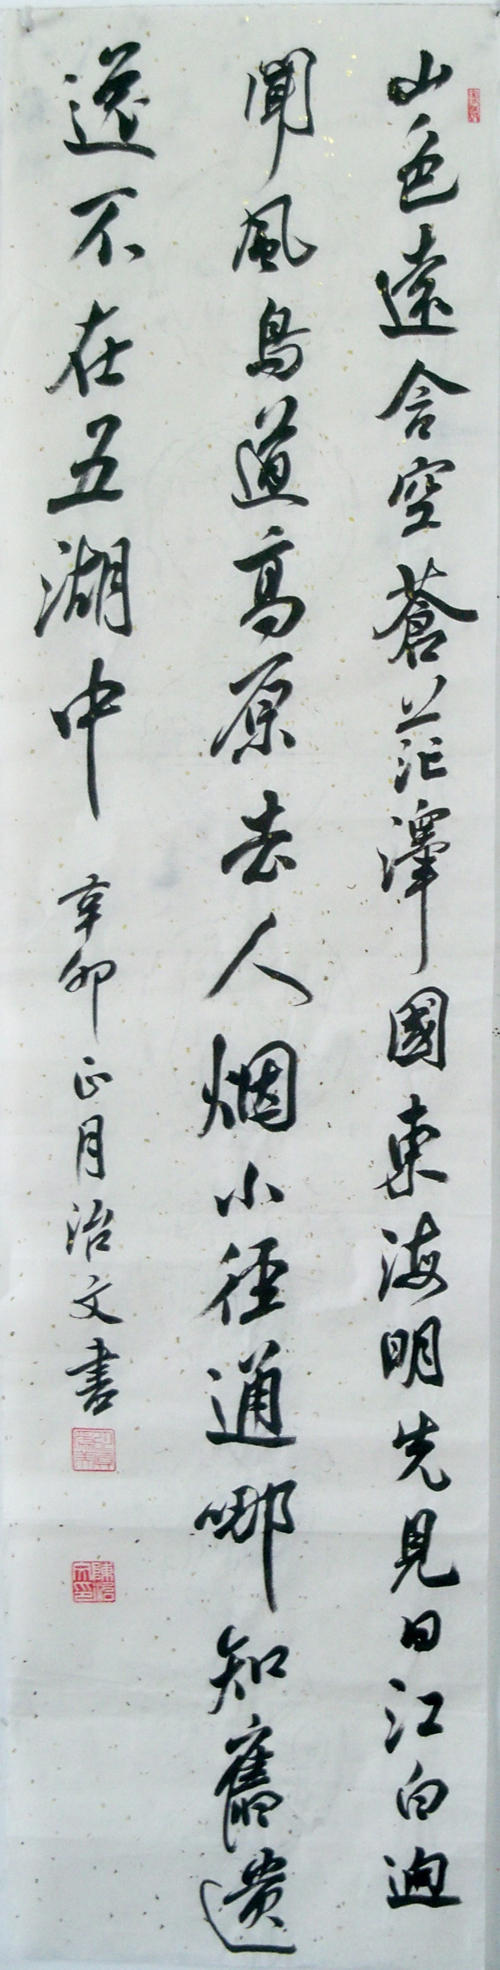 山色遠含空蒼茫澤國東海明先見日江白迥
聞風鳥道高原去人烟小徑通哪知舊遗
逸不在五湖中
辛卯正月治文書